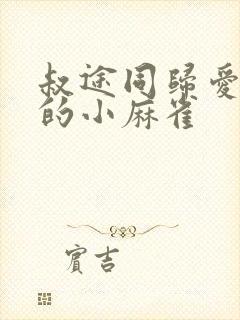 叔途同歸愛
的小麻雀
賓吉